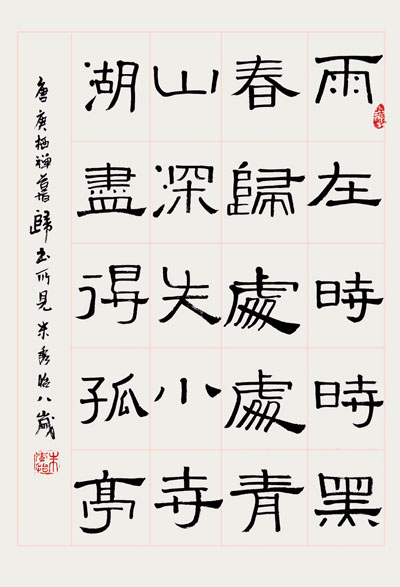 雨在時時黑
春歸處處青
山深失小寺
湖盡得孤亭
唐庚栖禪暮歸書所見朱秀昭八歲